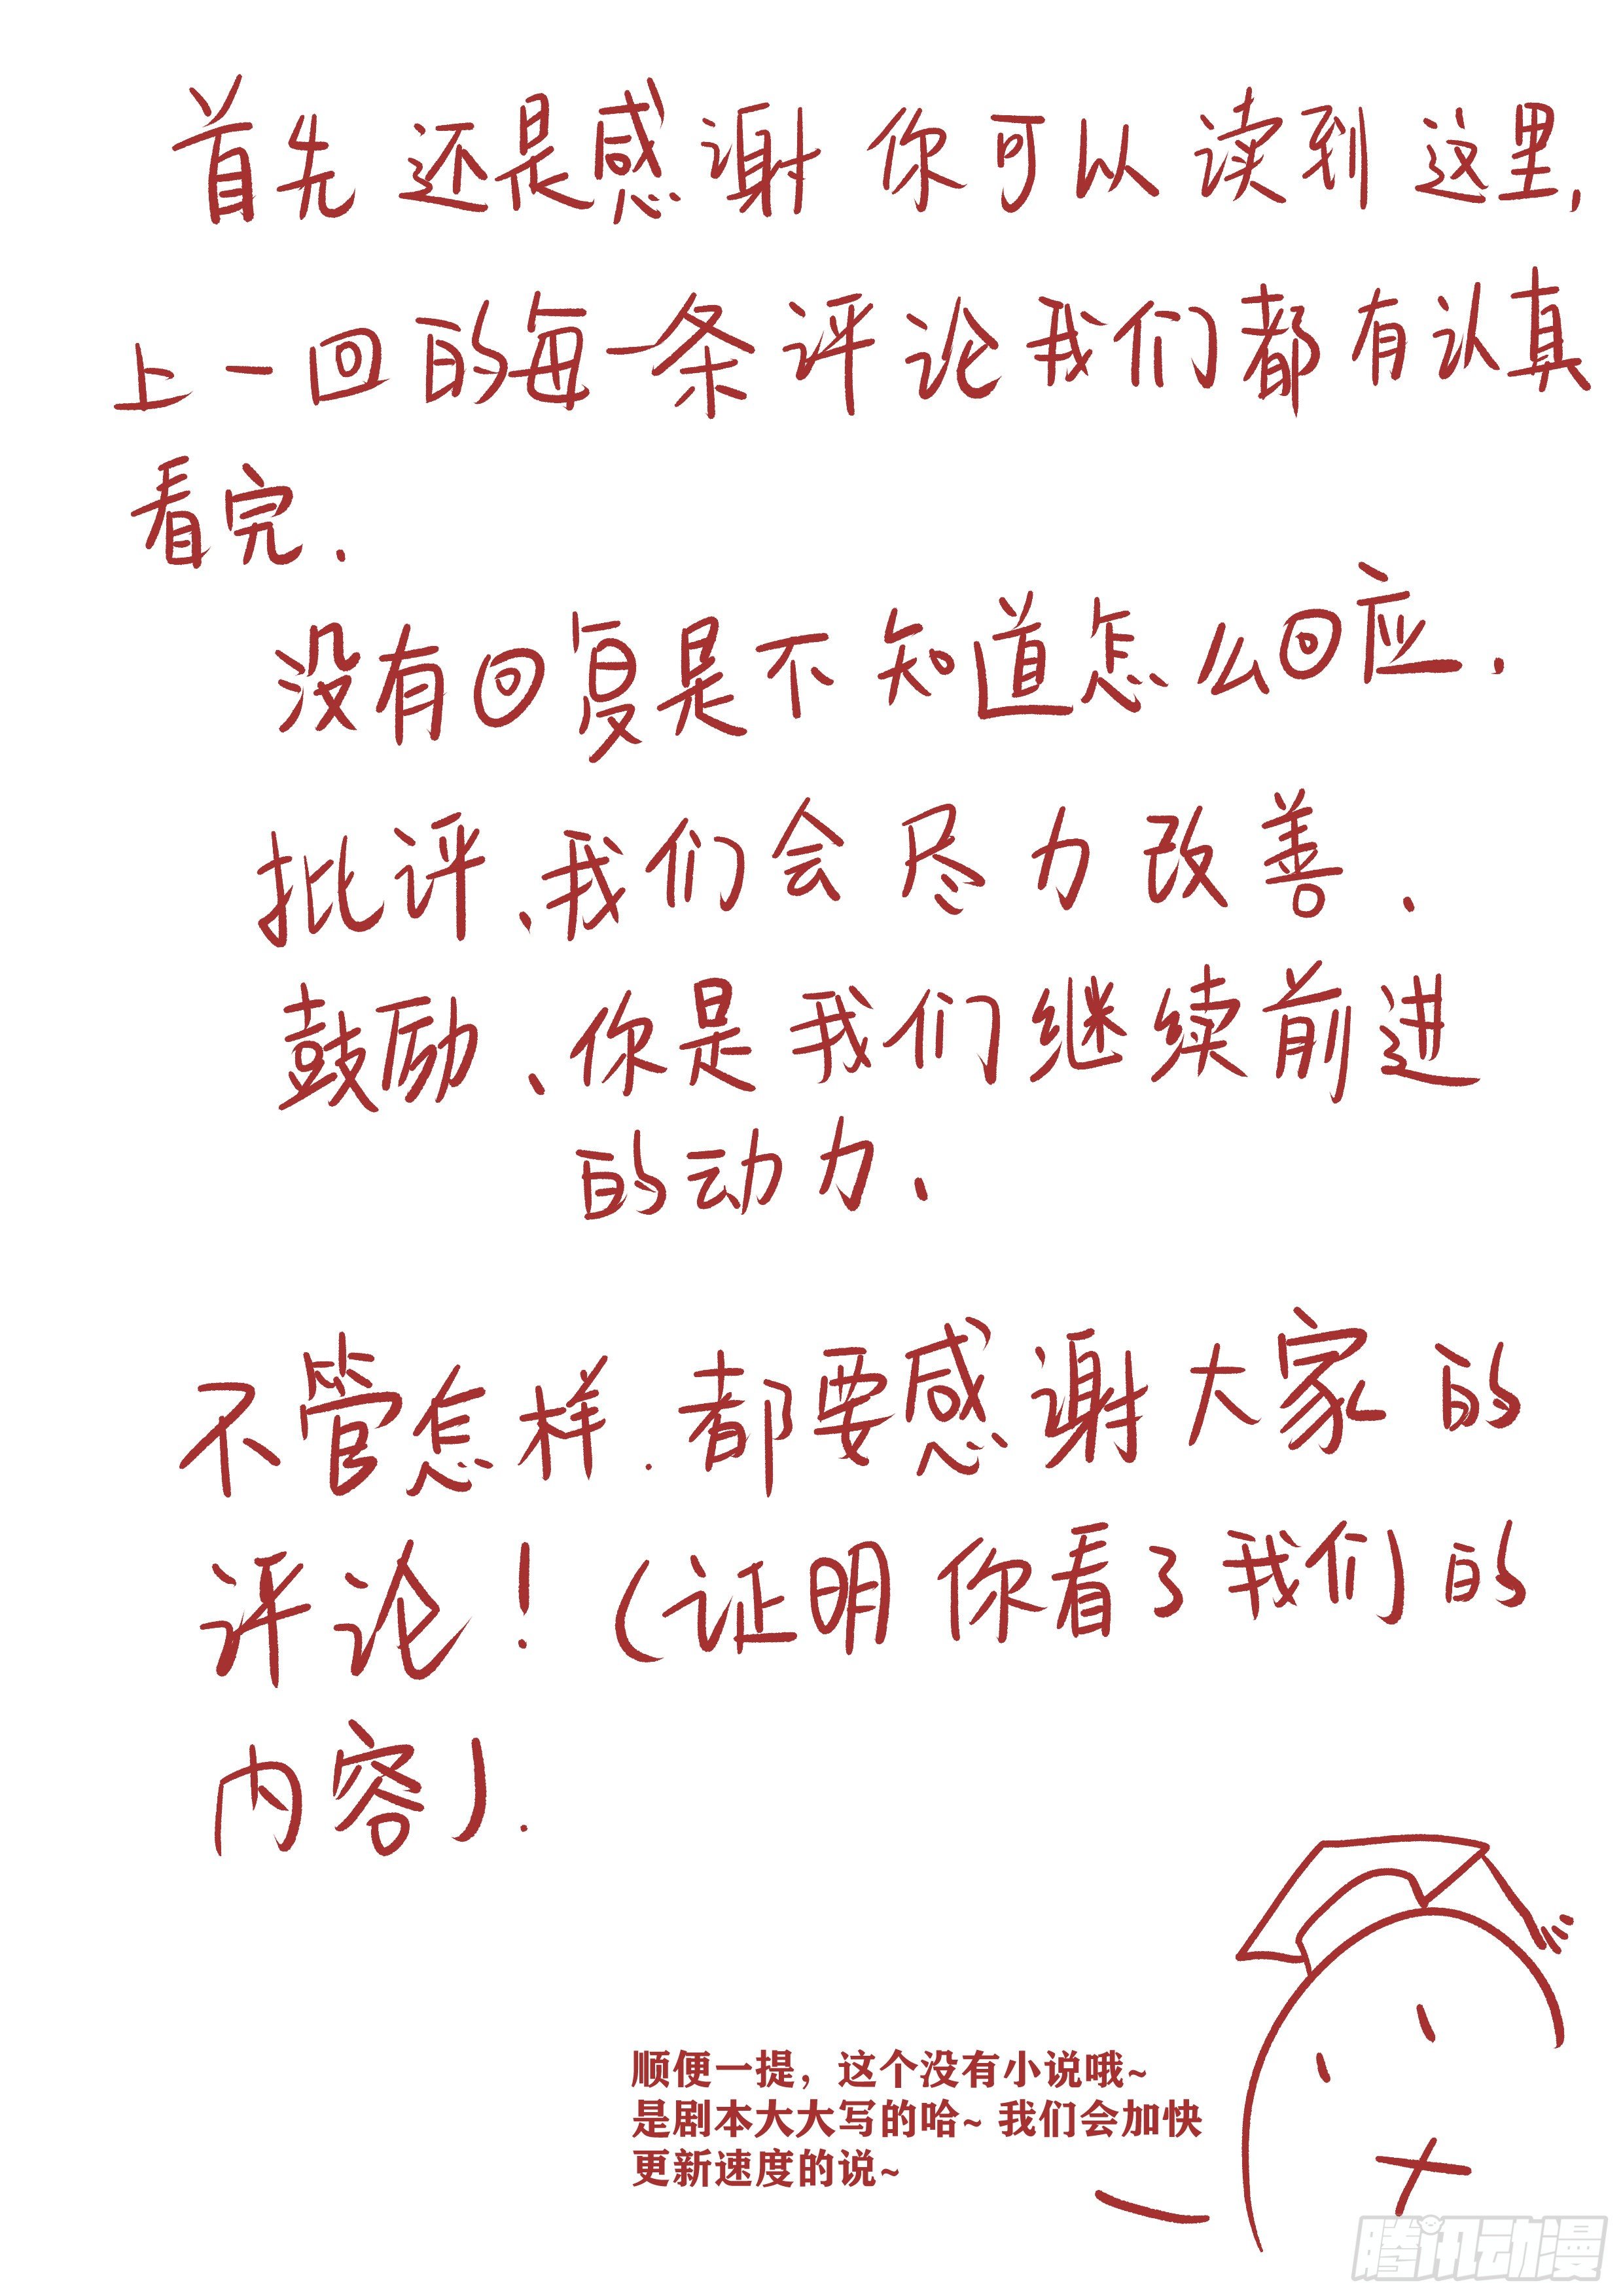 首先还是感谢你可以读到这里,
上一回的每一条评论我们都有认真
看完.
没有回复是不知道怎么回应.
批评、我们会尽力改善.
鼓励、你是我们继续前进
的动力、
不管怎样.都要感谢大家的
评论!(证明你看了我们的
内容).
顺便一提，这个没有小说哦~
是剧本大大写的哈~ 我们会加快
更新速度的说~
腾讯动漫